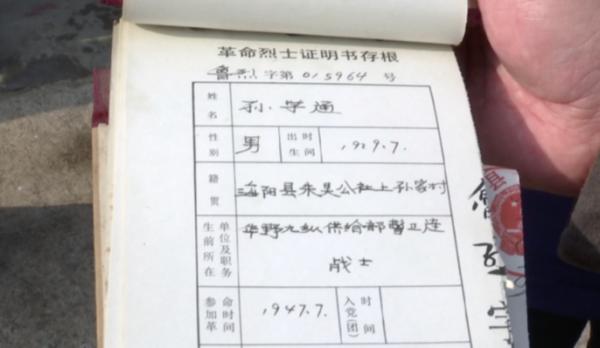 革命烈士证明书存根
鲁烈字第015964号
姓名 孙学通
性别 男 出生时间 1929.7.
籍贯 海阳县朱吴公社上孙家村
生前所在单位及职务 华野九纵供给部警卫连
战士
参加革命时间 1947.7. 入党(团)时间
县